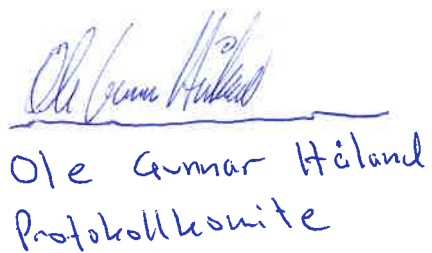 Ole Gunnar Håland
Ole Gunnar Håland
Protokollkomite